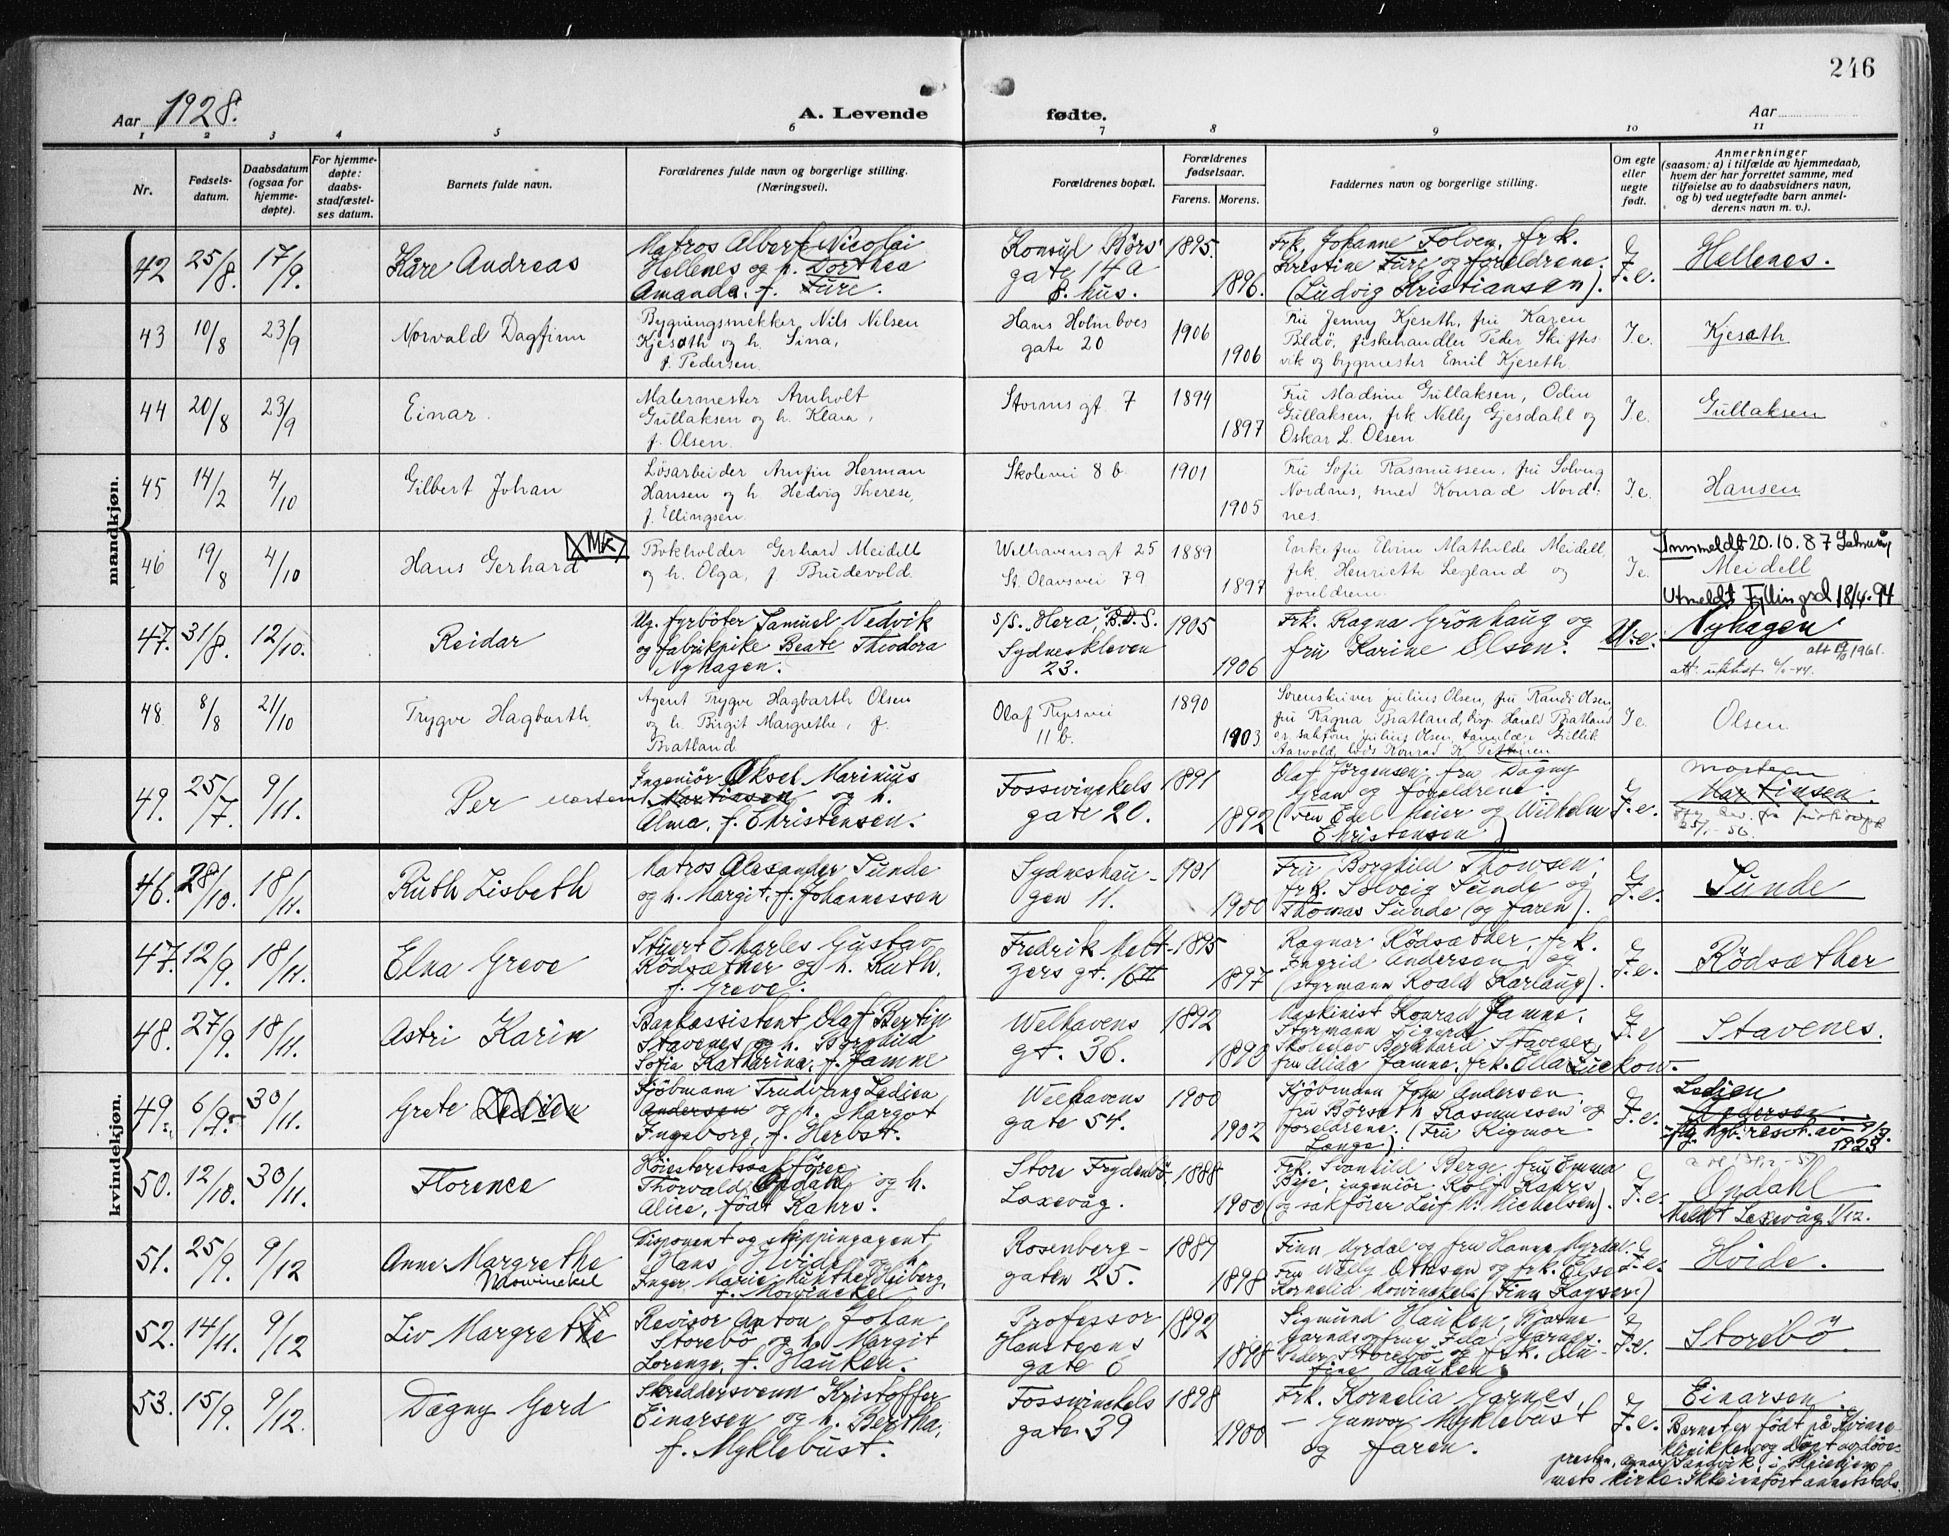 246
Aar 1928.
A. Levende fødte.
Aar
1 2 3 4 5 6 7 8 9 10 11
Nr.
Fødsels-
datum.
Daabsdatum
(ogsaa for
hjemme-
døpte).
For hjemme-
døpte:
daabs-
stadfæstel-
ses datum.
Barnets fulde navn.
Forældrenes fulde navn og borgerlige stilling.
(Næringsvei).
Forældrenes bopæl.
Forældrenes
fødselsaar.
Farens. Morens.
Faddernes navn og borgerlige stilling.
Om egte
eller
uegte
født.
Anmerkninger
(saasom: a) i tilfælde av hjemmedaab,
hvem der har forrettet samme, med
tilføielse av to daabsvidners navn,
og b) ved uegtefødte barn anmel-
derens navn m. v.).
mandkjøn.
42 25/8. 17/9. Kåre Andreas
Matros Albert Nicolai
Hellenes og h. Dorthea
Amanda, f. Fure.
Konsul Børs'
gate 14 a
B. hus.
1895. 1896.
Frk. Johanne Folven, frk.
Kristine Fure og foreldrene.
(Ludvig Kristiansen).
F.e.
Hellenes.
43 10/8 23/9 Norvald Dagfinn
Bygningssnekker Nils Nilsen
Kjeseth og h. Sina,
f. Pedersen.
Hans Holmboes
gate 20
1906 1906
Fru Jenny Kjeseth, fru Karen
Bldø, fiskehandler Peder Skiftes-
vik og bygmester Emil Kjeseth
I e.
Kjeseth
44 20/8 23/9 Einar.
Malermester Arnholt
Gullaksen og h. Klara,
f. Olsen.
Storms gt. 7
1894 1897
Fru Madsine Gullaksen, Odin
Gullaksen, frk Nelly Gjesdahl og
Oskar L. Olsen
I e.
Gullaksen
45 14/2 4/10 Gilbert Johan
Løsarbeider Arnfin Herman
Hansen og h. Hedvig Therese,
f. Ellingsen.
Skolevei 8 b.
1901 1905
Fru Sofie Rasmussen, fru Solveig
Nordnes, smed Konrad Nord-
nes.
I e.
Hansen
46 19/8 4/10 Hans Gerhard MK
Bokholder Gerhard Meidell
og h. Olga, f. Brudevold.
Welhavensgt 25
St. Olavsvei 79
1889 1897
Enkefru Elvine Mathilde Meidell,
frk. Henriette Legland og
foreldrene.
I e.
Innmeldt 20.10.87
Meidell
Utmeldt Fyllingsd. 18/4-94
47. 31/8. 12/10. Reidar
Ug. fyrbøter Samuel Vedvik
og fabrikpike Beate Theodora
Nyhagen.
s/s. "Hera", B.D.S.
Sydneskleven
23.
1905 1906
Frk. Ragna Grønhaug og
fru Karine Olsen.
U.e.
Nyhagen
1961.
48. 8/8 21/10 Trygve Hagbarth
Agent Trygve Hagbarth Olsen
og h. Birgit Margrethe, f.
Bratland.
Olaf Ryesvei
11 b.
1890 1903
Sorenskriver Julius Olsen, fru Randi Olsen,
fru Ragna Bratland, Harald Bratland
I e.
Olsen
49. 25/7. 9/11. Per Morten
Ingeniør Aksel Marinius
Martinsen og h.
Alma, f. Christensen.
Fosswinckels
gate 20.
1891 1892
Olaf Jørgensen, fru Dagny
Gran og foreldrene.
(ved Edel Meier og Wilhelm
Christensen)
F.e.
Morten
Martinsen.
kvindekjøn.
46. 28/10. 18/11. Ruth Lisbeth
Matros Alexander Sunde
og h. Margit, f. Johannessen
Sydneshau-
gen 11.
1901 1900
Fru Borghild Thowsen,
frk. Solveig Sunde og
Thomas Sunde (og faren).
F.e.
Sunde
47. 12/9. 18/11. Elna Greve
Stuert Charles Gustav
Rödsæther og h. Ruth,
f. Greve.
Fredrik Melt-
zers gt. 16 II
1895 1897
Ragnar Rödsæther, frk.
Ingrid Andersen og
(styrmann Roald Karlaug).
F.e.
Rödsæther
48. 27/9. 18/11. Astri Karin
Bankassistent Olaf Bertin
Stavenes og h. Borghild
Sofie Katharina, f. Jamne
Welhavens
gt. 36.
1892 1893
Maskinist Konrad Jamne,
Styrmann Sigurd
Skoleelev Bernhard Stavenes,
fru Alida Jamne, frk. Ella Lückow.
F.e
Stavenes.
49. 6/9. 30/11. Grete Ledien
Sjöbmann Trudvang Ledien
Andersen og h. Margot
Ingeborg, f. Herbst.
Welhavens
gate 54.
1900 1902
Kjöbmann John Andersen,
fru Borseth Rasmussen og
foreldrene. (Fru Rigmor
Lange).
F.e.
Ledien
Andersen
1923
50. 12/10. 30/11. Florence
Høiesteretssakfører
Thorvald Opdahl og h.
Alice, född Kahrs.
Store Frydenbö
Laxevåg.
1888 1900
Frk. Svanhild Berge, fru Emma
Beje, ingeniör Rolf Kahrs
(og sakförer Leif M. Michelsen).
F.e.
Opdahl
Meldt Laxevåg 1/12.
51. 25/9. 9/12 Anne Margrethe
Mowinckel
Disponent og skippingagent
Hans Hvide og h.
Inger Marie Munthe Heiberg,
f. Mowinckel
Rosenberg-
gaten 25.
1889 1898
Finn Myrdal og fru Hanna Myrdal.
Fru Milly Ottesen og frk. Else
Kornelia Mowinckel. (Finn Kayser)
F.e.
Hvide.
52. 14/11. 9/12 Liv Margrethe
Revisor Anton Johan
Storebö og h. Margit
Lorenze, f. Hauken.
Professor
Hansteens
gate 6
1892 1898
Sigmund Hauken, Bjarne
Garnes og fru Ida Garnes.
Peder Storebö og frk. Alu-
fine Hauken.
F.e.
Storebö
53. 15/9. 9/12. Dagny Gerd
Skreddersvenn Kristoffer
Einarsen og h. Bertha,
f. Myklebust.
Fosswinckels
gate 39
1898 1900
Frk. Kornelia Garnes,
- Gunvor Myklebust
og faren.
F.e.
Einarsen.
Barnet er født på Kvinne-
klinikken og døpt av døve-
presten, Sandvik, i Mariekjem-
mets kirke. Ikke innført annetsteds.